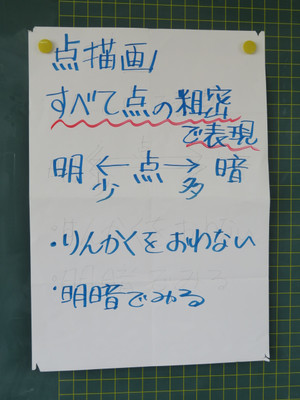 点描画
すべて点の粗密
で表現
明←点→暗
少 多
・りんかくをおわない
・明暗でみる